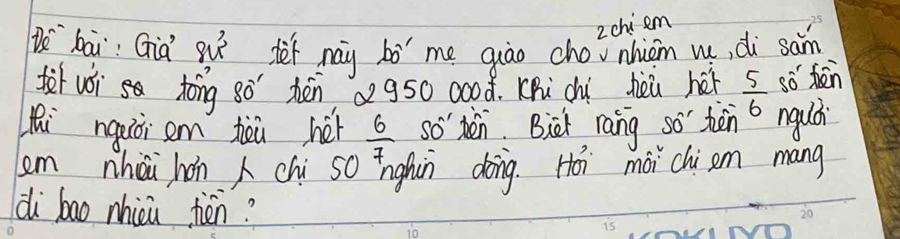 Đề bài: Giả sử tết này bố mẹ giao cho 2 chị em nhiệm vụ, đi sắm
tết với tổng số tiền 2950 000đ. Khi chị tiêu hết 5/6 số tiền
thì người em tiêu hết 6/7 số tiền. Biết rằng số tiền người
em nhiều hơn chị 50 nghìn đồng. Hỏi mỗi chị em mang
đi bao nhiêu tiền?
0 5 10 15 20 25
KOKUYO